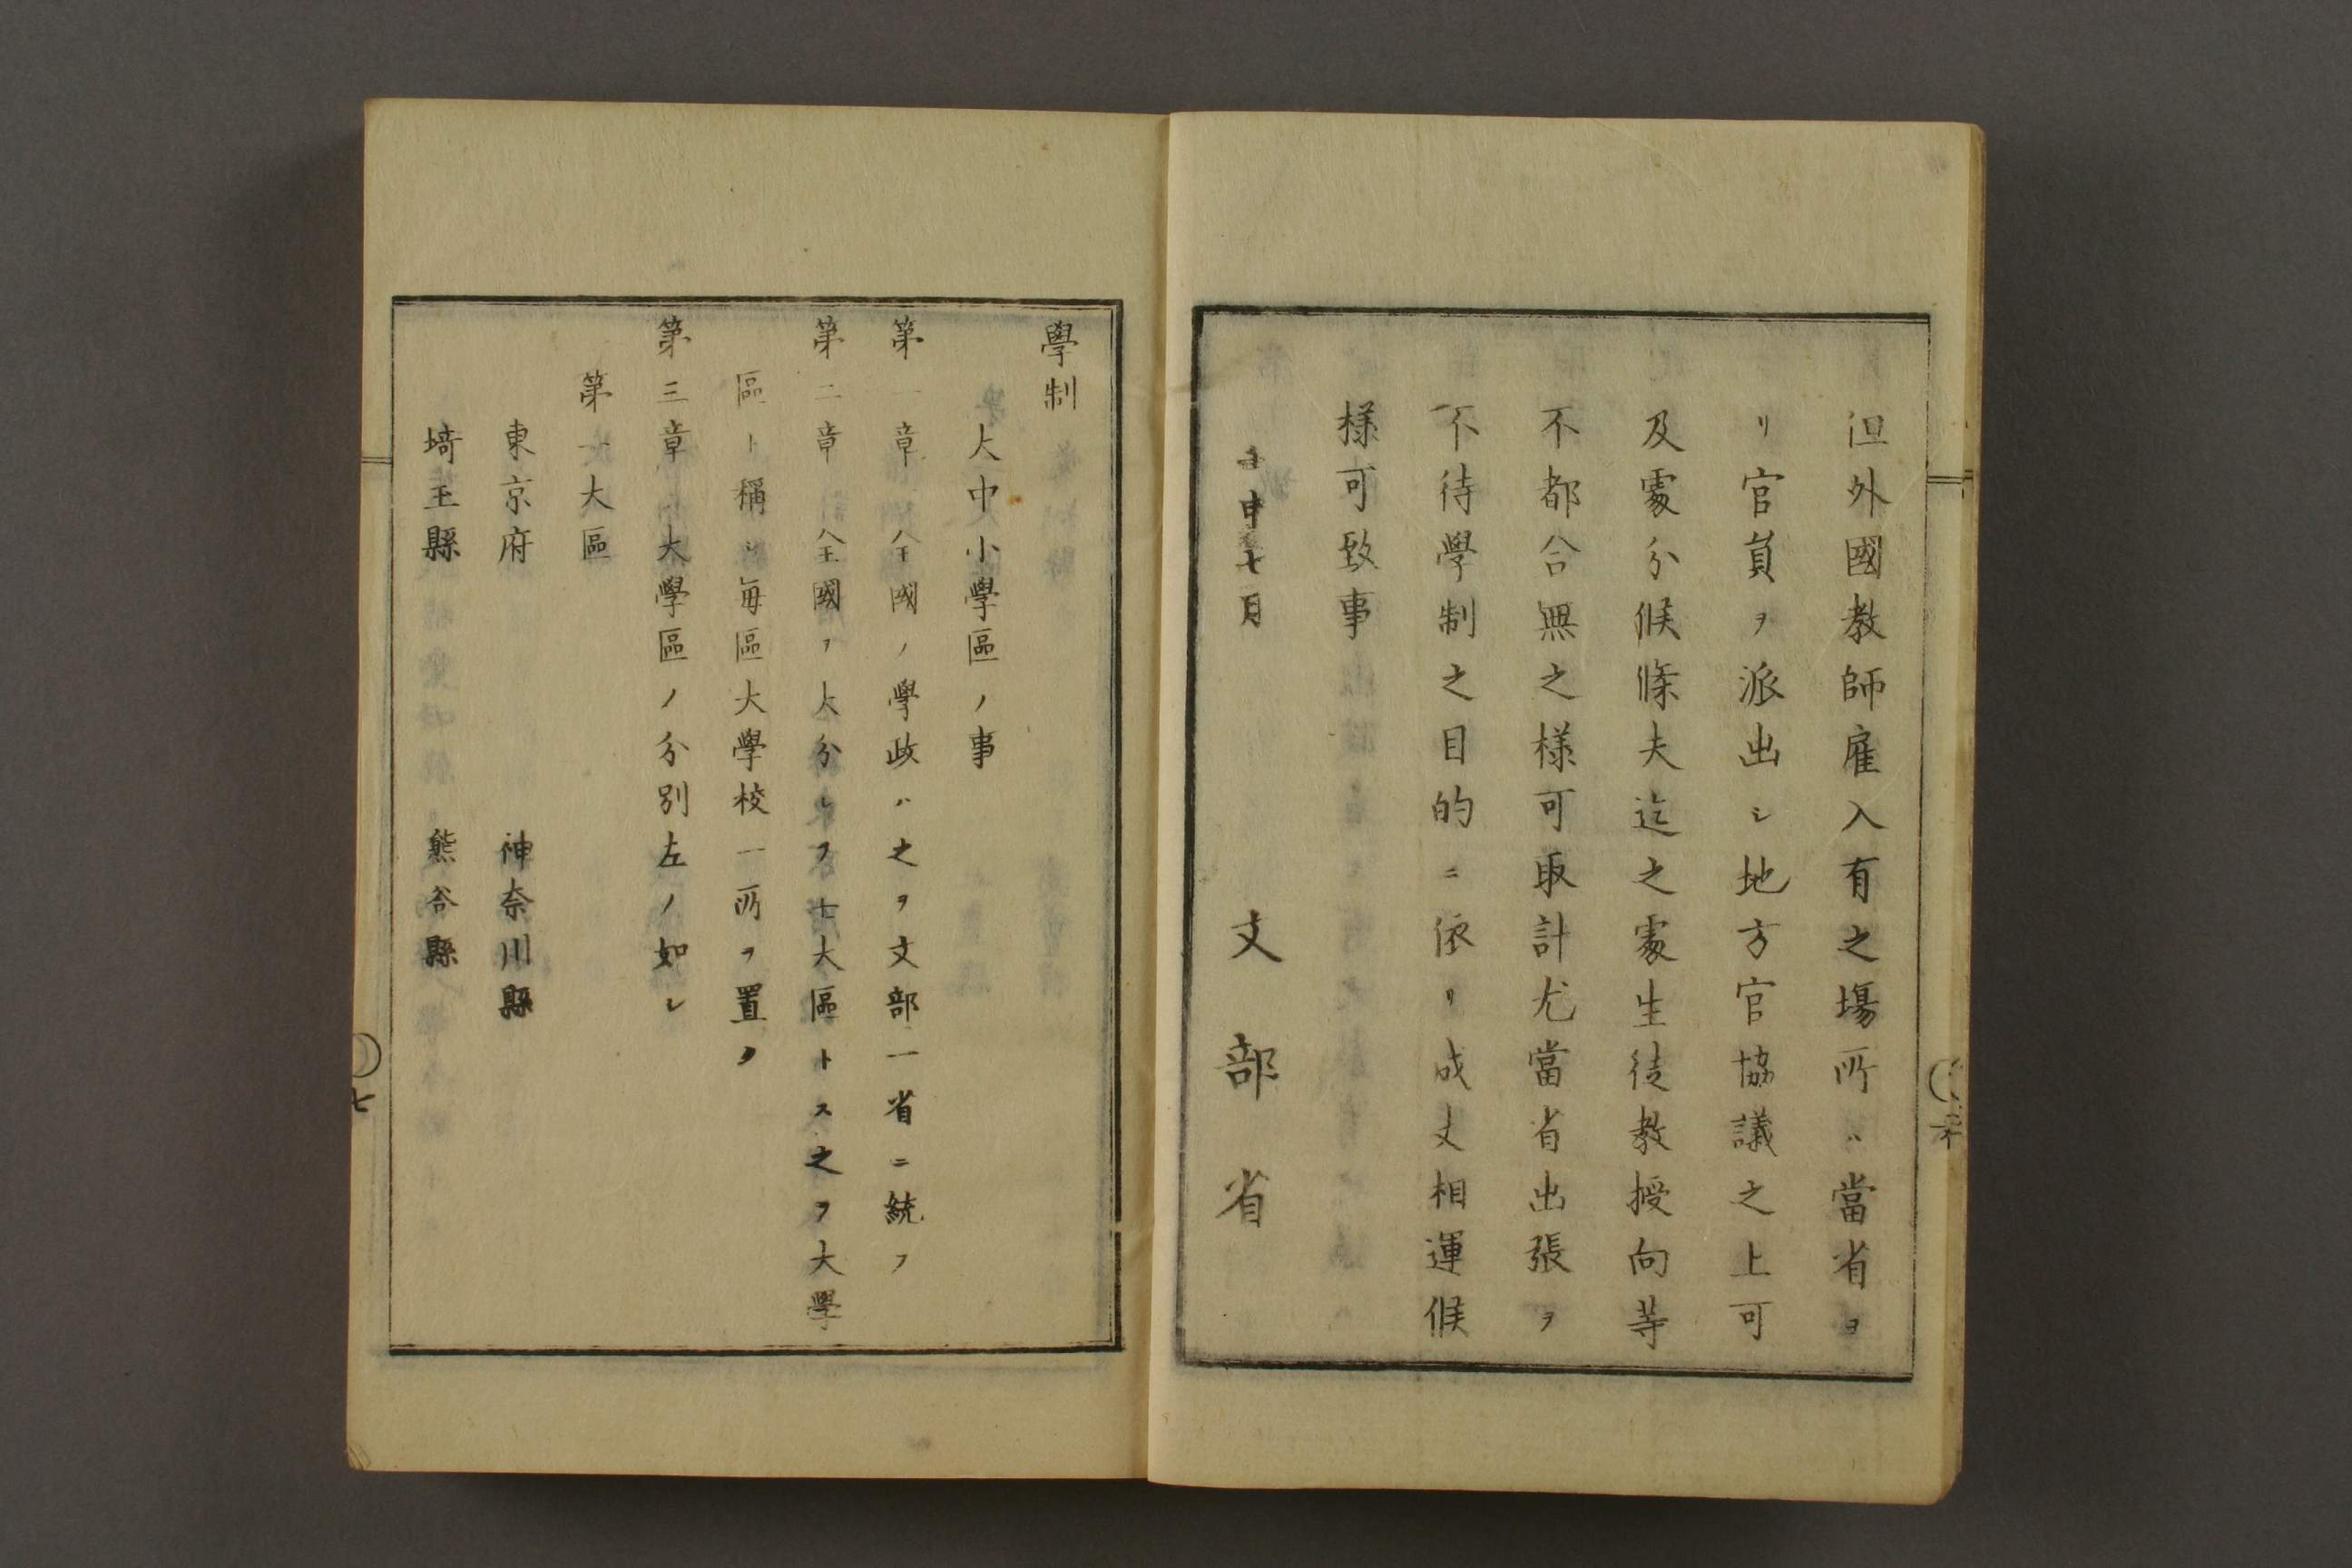 但外國教師雇入有之場所ハ當省ヨ
リ官員ヲ派出シ地方官協議之上可
及處分候條夫迄之處生徒教授向等
不都合無之樣可取計尤當省出張ヲ
不待學制之目的ニ依リ成丈相運候
樣可致事
壬申七月
文部省
學制
大中小學區ノ事
第一章 全國ノ學政ハ之ヲ文部一省ニ統フ
第二章 全國ヲ大分シテ七大區トス之ヲ大學
區ト稱シ每區大學校一所ヲ置ク
第三章 大學區ノ分別左ノ如シ
第一大區
東京府 神奈川縣
埼玉縣 熊谷縣
七